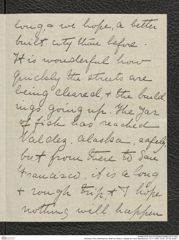 long a we hope, a better
built city than before.
It is wonderful how
quickly the streets are
being cleared & the build
ings going up. The jar
of fish has reached
Valdez, Alaska, safely
but from there to San
Francisco, it is a long
& rough trip & I hope
nothing will happen